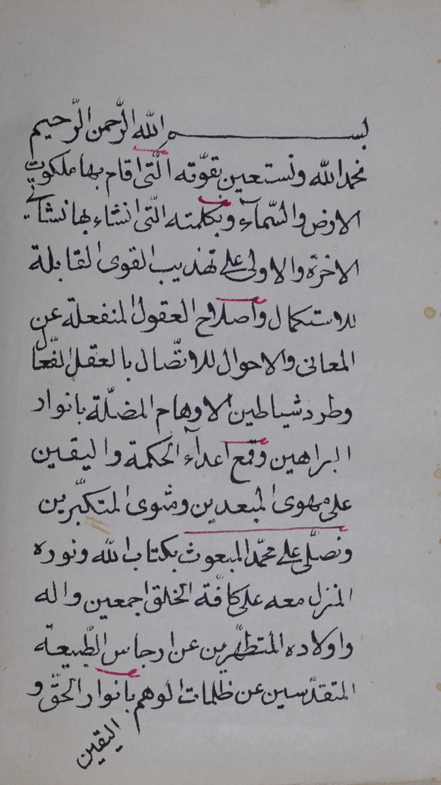 بسم الله الرّحمن الرّحيم
نحمد الله ونستعين بقوّته الّتى اقام بها ملكوت
الارض والسّمآء وبكلمته الّتى انشاء بها نشأتى
الاخرة والاولى على تهذيب القوى القابلة
للاستكمال واصلاح العقول المنفعلة عن
المعانى والاحوال للاتّصال بالعقل الفّعا
وطرد شياطين الاوهام المضلّة بانوار
البراهين وقمع اعدآء الحكمة واليقين
على مهوى المبعدين ومثوى المتكبّرين
ونصلّى على محمّد المبعوث بكتاب الله ونوره
المنزل معه على كافّة الخلق اجمعين واله
واولاده المتطهّرين عن ارجاس الطّبيعة
المتقدّسين عن ظلمات الوهم بانوار الحقّ و
اليقين